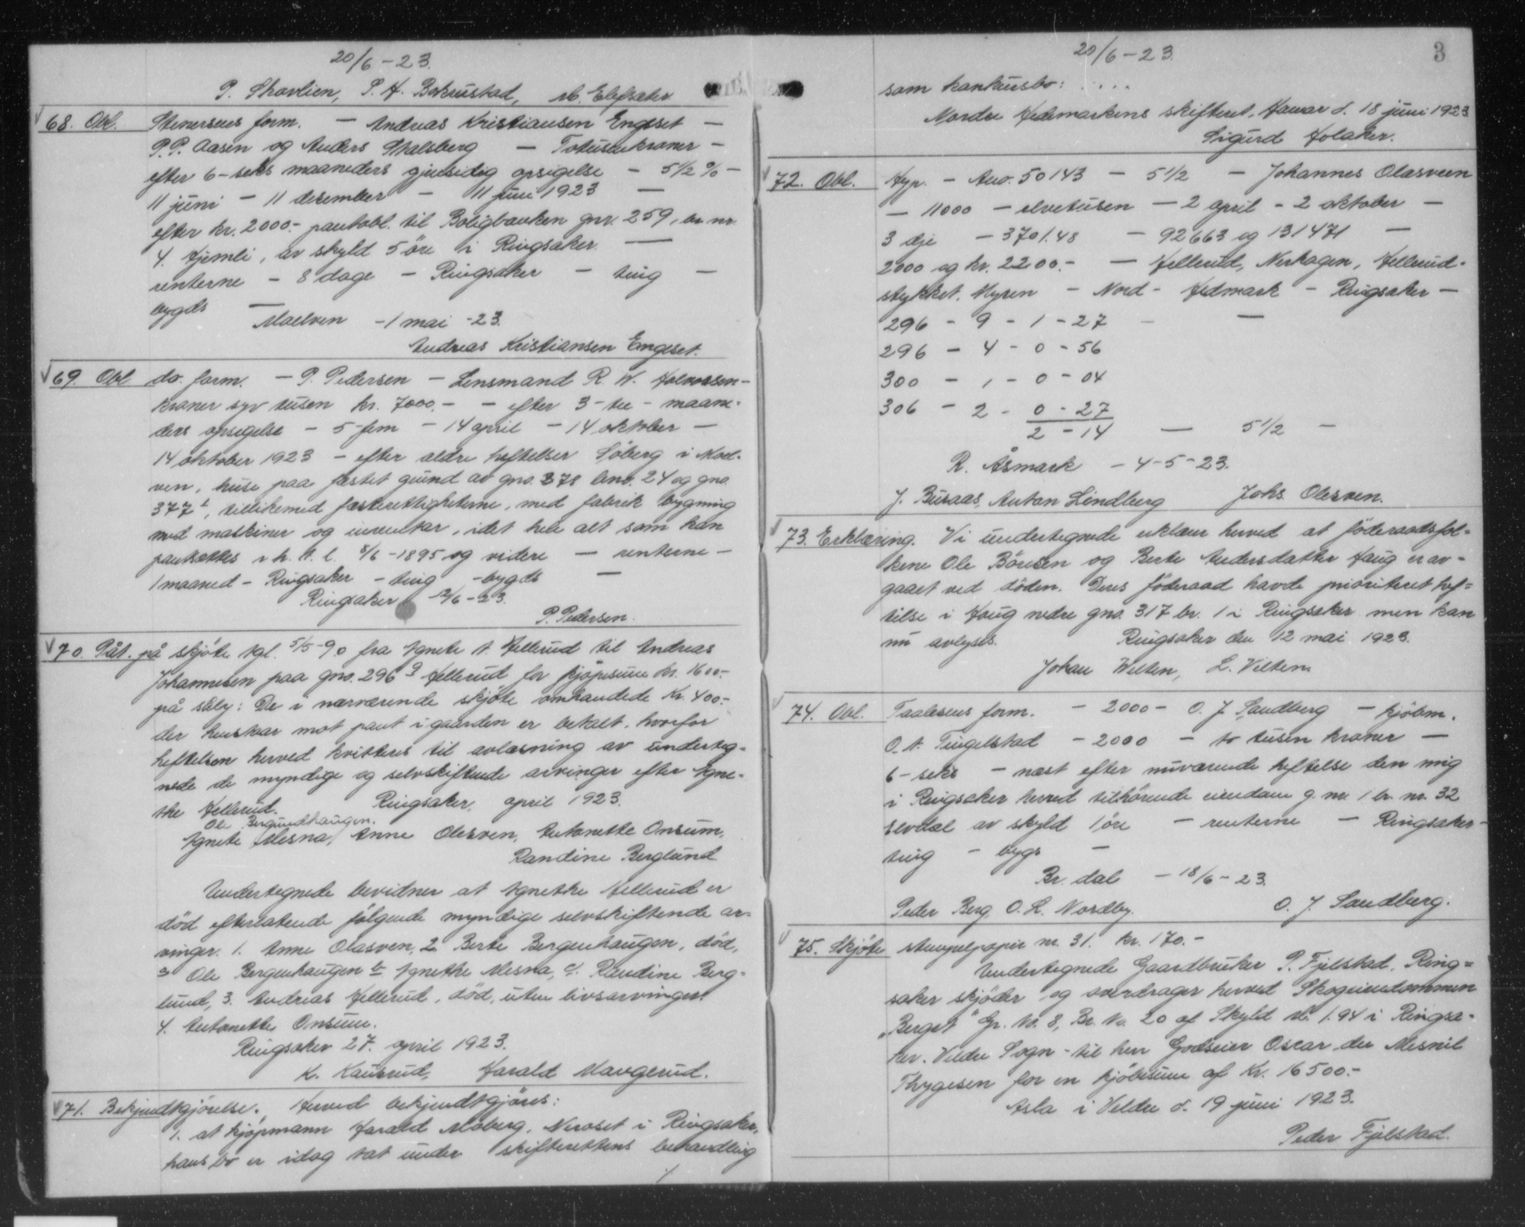 20/6-23.
P. Skavlien, P. A. Bekkustad, M. Elefsæter
68. Obl. Stenersens form. - Andreas Kristiansen Engeset -
P. P. Aasen og Anders Skalsberg - Totusenkroner -
efter 6-seks maaneders gjensidig opsigelse - 5 1/2 % -
11 juni - 11 desember - 11 juni 1923 -
efter kr. 2000.- pantobl. til Boligbanken gnr. 259, br. nr.
4. Hjemli, av skyld 5 öre i Ringsaker -
renterne - 8 dage - Ringsaker - ting -
bygds -
Moelven - 1 mai -23.
Andreas Kristiansen Engeset.
69 Obl do. form. - P. Pedersen - Lensmand R. W. Halvorsen -
kroner syv tusen kr. 7000.- - efter 3-tre- maane-
ders opsigelse - 5-fem - 14 april - 14 oktober -
14 oktober 1923 - efter ældre heftelser Söberg i Moel-
ven, huse paa festet grund av gno. 378 bno. 24 og gno
377 1, tillikemed festerettigheterne, med fabrik bygning
med maskiner og inventar, idet hele alt som kan
pantsettes i h. t. l. 8/6-1895 og videre - renterne -
1 maaned - Ringsaker - ting - bygds -
Ringsaker 12/6-23.
P. Pedersen.
70 Påt. på skjöte tgl. 5/5-90 fra Agnete A. Hellerud til Andreas
Johannesen paa gno. 296 9 Hellerud for kjöpesum kr. 1600.-
på såly: De i nærværende skjöte omhandlede Kr. 400.-
der henstaar mot pant i gaarden er betalt, hvorfor
heftelsen herved kvitteres til avlæsning av underteg-
nede de myndige og selvskiftende arvinger efter Agne-
the Hellerud. Ringsaker, april 1923.
Ole Bergundhaugen.
Agnete Mesna, Anne Olasven, Antonette Onsum,
Randine Berglund
Undertegnede bevidner at Agnethe Hellerud er
död efterlatende fölgende myndige selvskiftende ar-
vinger. 1. Anne Olasven, 2 Berte Bergenhaugen, död,
a Ole Bergenhaugen b Agnethe Mesna, c. Randine Berg-
lund, 3. Andreas Hellerud, död, uten livsarvinger
4. Antonette Onsum.
Ringsaker 27. april 1923.
K. Kausrud, Harald Haugerud.
71. Bekjendtgjörelse. Herved bekjendtgjöres:
1. at kjöpmann Harald Moberg, Næroset i Ringsaker,
hans bo er idag tat under skifterettens behandling
20/6-23. 3
som konkursbo: . . . .
Nordre Hedemarkens skifteret, Hamar d. 18 juni 1923
Sigurd Folaker.
72. Obl. Hyp. - Anv. 50143 - 5 1/2 - Johannes Olasveen
- 11000 - elvetusen - 2 april - 2 oktober -
3 dje - 3701.48 - 92663 og 131471 -
2000 og kr. 2200.- - Hellerud, Nerhagen, Hellerud-
stykket. Myren - Nord - Hedmark - Ringsaker -
296 - 9 - 1 - 27 - -
296 - 4 - 0 - 56
300 - 1 - 0 - 04
306 - 2 - 0 - 27
2 - 14 - 5 1/2 -
R. Åsmark - 4-5-23.
J. Buraas, Anton Lindberg Johs Olesven.
73. Erklæring. Vi undertegnede erklærer herved at föderaadsfol-
kene Ole Börresen og Berte Andersdatter Haug er av-
gaaet ved döden. Deres föderaad havde prioritert hef-
telse i Haug nedre gno. 317 br. 1 i Ringsaker men kan
nu avlyses. Ringsaker den 12 mai 1923.
Johan Welten, L. Velten.
74. Obl. Faalesens form. - 2000 - O. J. Sandberg - kjöbm.
O. A. Tingelstad - 2000 - to tusen kroner -
6 - seks - næst efter nuværende heftelse den mig
i Ringsaker herved tilhörende eiendom g. nr. 1 br. nr. 32
Elvedal av skyld 1 öre - renterne - Ringsaker -
ting - bygs -
Br. dal - 18/6-23.
Peder Berg O. L. Nordby. O. J. Sandberg.
75. Skjöte stempelpapir nr. 31. kr. 170.-
Undertegnede Gaardbruker P. Fjelstad, Ring-
saker skjöder og overdrager herved Skogeiendommen
"Berget" Gr. No. 8, Br. No. 20 af Skyld M. 1.94 i Ringsa-
ker. Veldre Sogn - til herr Godseier Oscar du Mesnil
Thygesen for en kjöbesum af Kr. 16500.-
Asla i Veldre d. 19 juni 1923.
Peder Fjelstad.